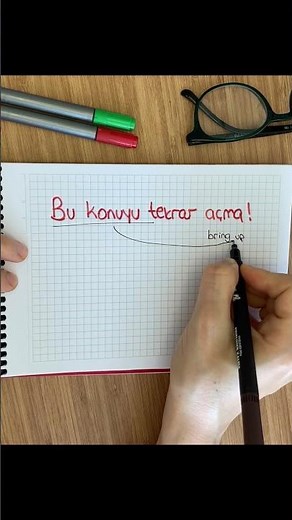 Bu konuyu tekrar açma!
bring up